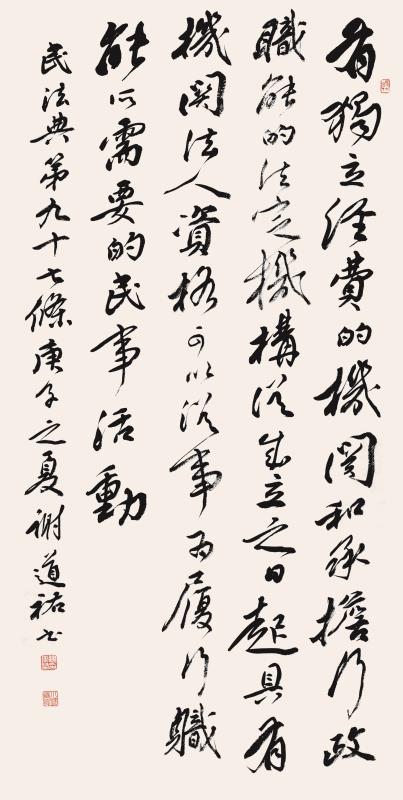 有獨立經費的機関和承擔行政
職能的法定機構從成立之日起具有
機関法人資格可以從事為履行職
能所需要的民事活動
民法典第九十七條庚子之夏謝道祐書